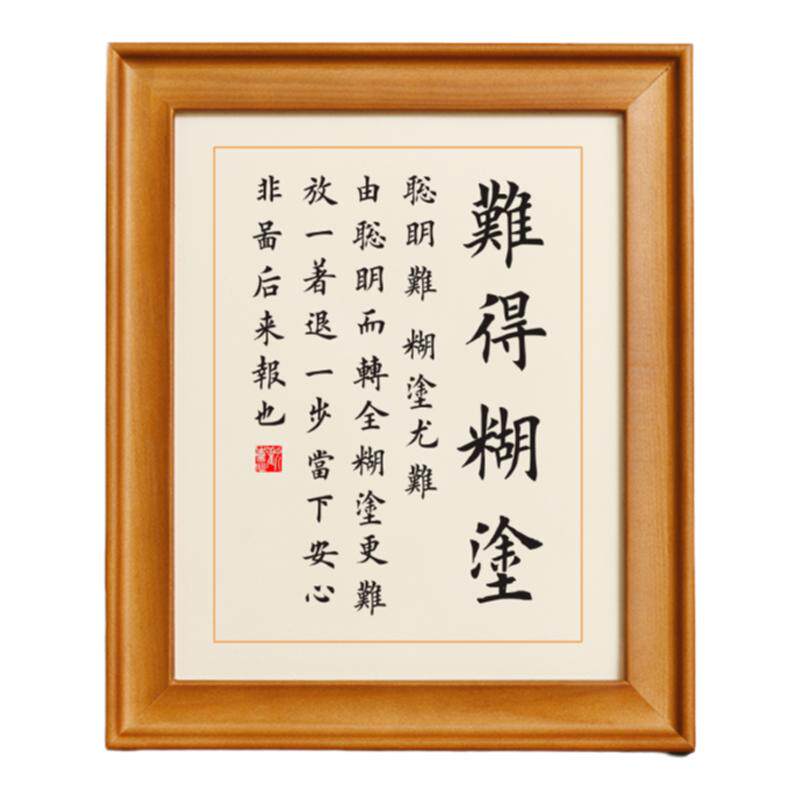 難得糊塗
聡明難 糊塗尤難
由聡明而轉全糊塗更難
放一著退一步當下安心
非啚后来報也